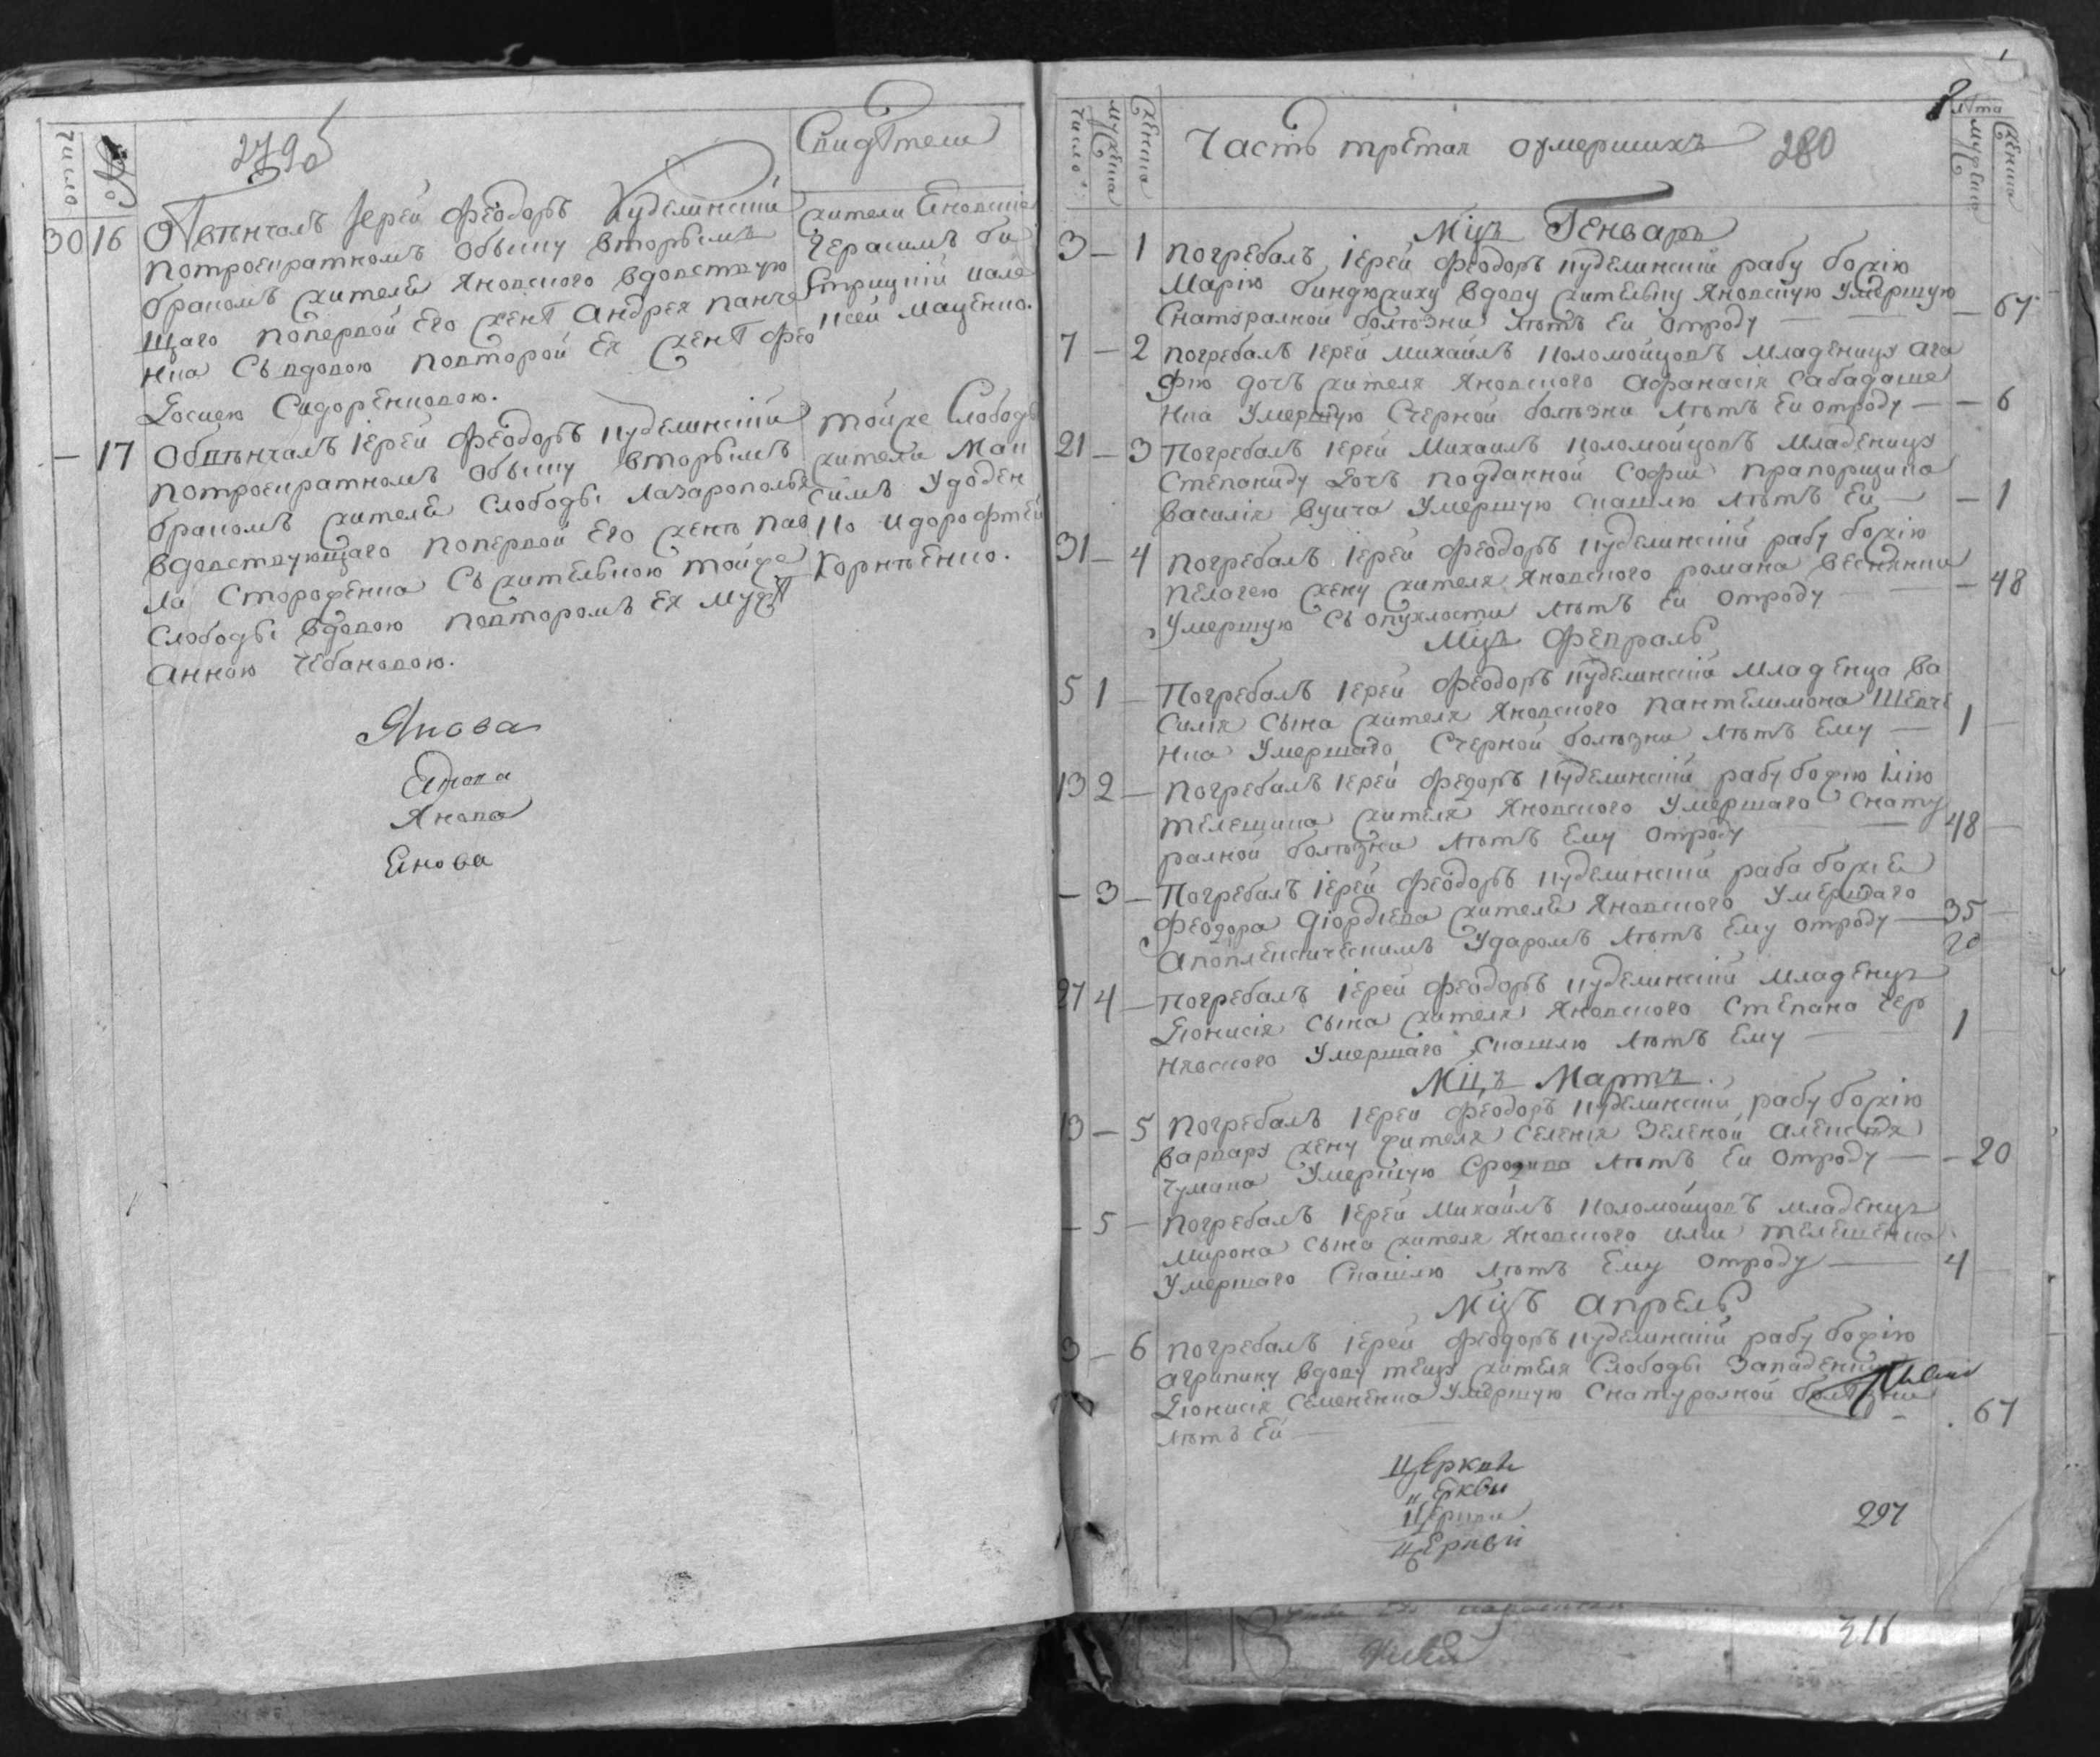 число
279 об
Свидѣтели
30 16 Обвѣнчалъ Іерей Феодоръ Куделинскій
потроекратномъ обыску вторымъ
бракомъ жителя Яновского вдовствую
щаго попервой Его женѣ Андрея Панче
нка Съ вдовою повторой Ея женѣ Фео
досиею Сидоренковою.
жители Еновские
Герасимъ би
Стрицкій иале
ксей Маценко.
— 17 Обвѣнчалъ Іерей Феодоръ куделинскій
потроекратномъ обыску вторымъ
бракомъ жителя Слободы Лазарополья
вдовствующаго попервой Его женѣ Пав
ла Стороженка Съ жителькою тойже
Слободы вдовою повторомъ Ея Мужѣ
Анною Чебановою.
тойже Слободы
жители Мак
симъ Удоден
ко идорофтей
Корнѣенко.
Янова
Енова
Янова
Енова
число
мужеска
женска
Часть третая оумершихъ 280
лѣта
мужеска
женска
Мцъ Генварь
3 — 1 погребалъ Іерей Феодоръ куделинскій рабу божію
Марію биндюжиху вдову жителку Яновскую умершую
Снатуралной болѣзни лѣтъ Ей отроду — — 67
7 — 2 погребалъ Іерей Михаилъ коломойцовъ Младеницу Ага
фію дочъ жителя Яновского Афанасія Сабадаше
нка умершую Счерной болѣзни лѣтъ Ей отроду — — 6
21 — 3 Погребалъ Іерей Михаилъ коломойцовъ Младеницу
Степаниду дочъ подданной Софии прапорщика
Василія Вуича умершую Скашлю лѣтъ Ей — — 1
31 — 4 погребалъ Іерей Феодоръ куделинскій рабу божію
пелагею жену жителя Яновского романа Веснянки
умершую Съ опухлости лѣтъ Ей отроду — — 48
Мцъ Февраль
5 1 — Погребалъ Іерей Феодоръ куделинскій младенца Ва
силія сына жителя Яновского пантелимона Шевче
нка умершаго Счерной болѣзни лѣтъ Ему — 1 —
13 2 — погребалъ Іерей Феодоръ куделинскій рабу божію Илію
телещика жителя Яновского умершаго Снату
ралной болѣзни лѣтъ Ему отроду — 48 —
— 3 — Погребалъ Іерей Феодоръ куделинскій раба божіе
Феодора Діордіева жителя Яновского умершаго
Апоплексическимъ Ударомъ лѣтъ Ему отроду — 35 —
27 4 — погребалъ Іерей Феодоръ куделинскій младенца
Дионисія сына жителя Яновского Степана Чер
нявского умершаго Скашлю лѣтъ Ему — 1 —
Мцъ Мартъ.
13 — 5 погребалъ Іерей Феодоръ куделинскій рабу божію
варвару жену жителя Селенія Зеленой Алексѣя
Чумака умершую Сродива лѣтъ Ей отроду — — 20
— 5 — погребалъ Іерей Михаилъ коломойцовъ младенца
мирона сына жителя Яновского илии телешенка
умершаго Скашлю лѣтъ Ему отроду — 4 —
Мцъ Апрель
3 — 6 погребалъ Іерей Феодоръ куделинскій рабу божію
агрипину вдову тещу жителя Слободы
Дионисія Семененка умершую Снатуралной болѣзни
лѣтъ Ей — . 67
Церкви
Церкви
Церкви
Церкви
297
311